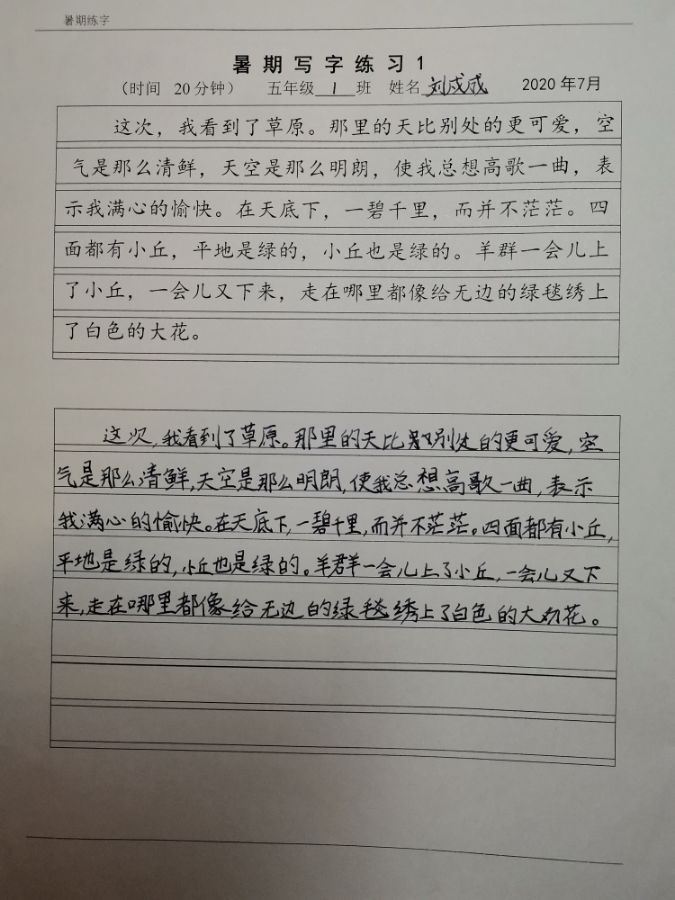 暑期练字
暑期写字练习1
（时间 20分钟） 五年级 1 班 姓名 刘成成 2020年7月
这次，我看到了草原。那里的天比别处的更可爱，空
气是那么清鲜，天空是那么明朗，使我总想高歌一曲，表
示我满心的愉快。在天底下，一碧千里，而并不茫茫。四
面都有小丘，平地是绿的，小丘也是绿的。羊群一会儿上
了小丘，一会儿又下来，走在哪里都像给无边的绿毯绣上
了白色的大花。
这次，我看到了草原。那里的天比别处的更可爱，空
气是那么清鲜，天空是那么明朗，使我总想高歌一曲，表示
我满心的愉快。在天底下，一碧千里，而并不茫茫。四面都有小丘，
平地是绿的，小丘也是绿的。羊群一会儿上了小丘，一会儿又下
来，走在哪里都像给无边的绿毯绣上了白色的大花。